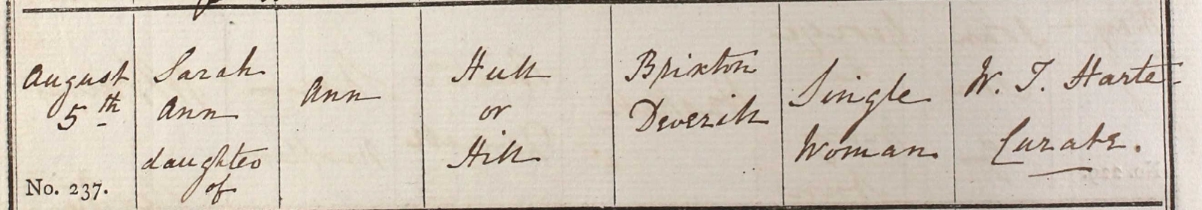 August
5th
No. 237.
Sarah
Ann
daughter
of
Ann
Hull
or
Hill
Brixton
Deverill
Single
Woman
W. T. Harte
Curate.